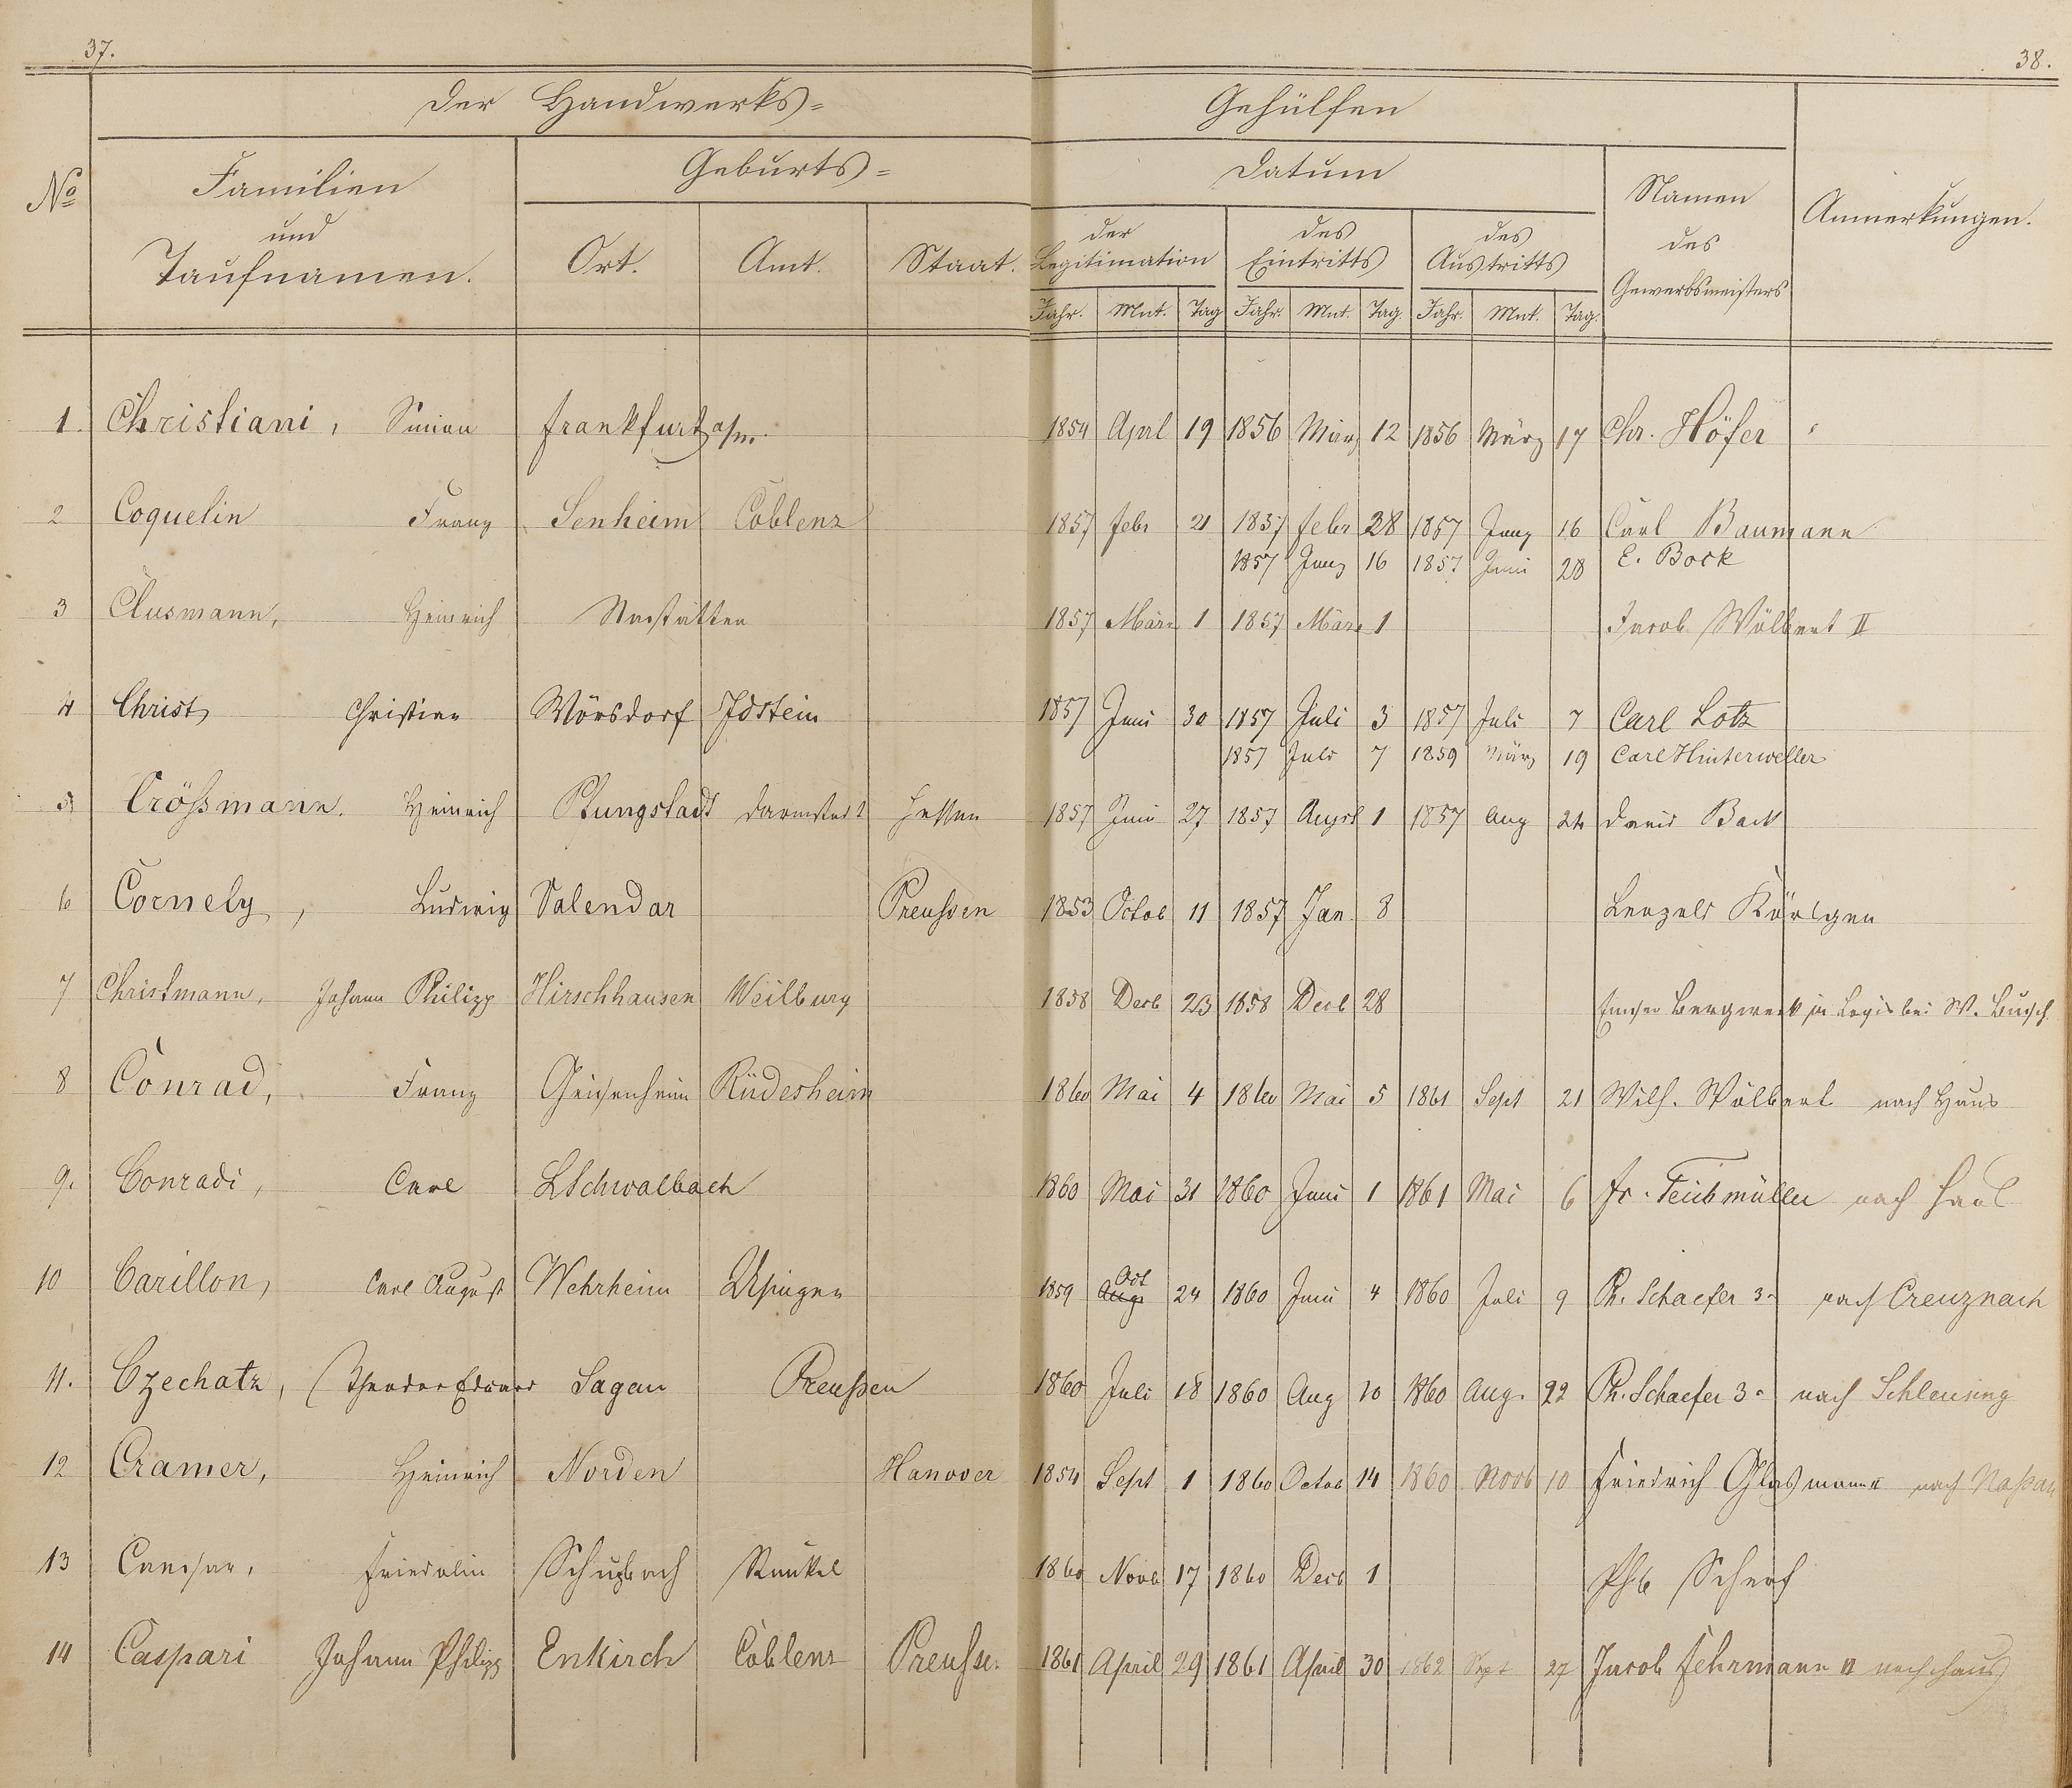 37.
38.
Der Handwerks=
Gehülfen
No
Familien
und
Taufnamen.
Geburts=
Ort.
Amt.
Staat.
Datum
der
Legitimation
des
Eintritts
des
Austritts
Jahr. Mnt. Tag Jahr. Mnt. Tag. Jahr. Mnt. Tag.
Namen
des
Gewerbsmeisters
Anmerkungen.
1. Christiani, Simon Frankfurt a/m. 1854 April 19 1856 März 12 1856 März 17 Chr. Höfer
2 Coquelin Franz Senheim Coblenz 1857 febr 21 1857 febr 28 1857 Juny 16 Carl Baumann
1857 Juny 16 1857 Juni 28 E. Bock
3 Clusmann, Heinrich Nastätten 1857 März 1 1857 März 1 Jacob Wölbert II
4 Christ, Christian Wörsdorf Idstein 1857 Juni 30 1857 Juli 3 1857 Juli 7 Carl Lotz
1857 Juli 7 1859 März 19 Carl Hinterweller
5 Crößmann. Heinrich Pfungstadt Darmstadt Hessen 1857 Juni 27 1857 Augst 1 1857 Aug 24 David Back
6 Cornely, Ludwig Valendar Preußen 1853 Octob 11 1857 Jan 8
7 Christmann, Johann Philipp Hirschhausen Weilburg 1858 Decb 23 1858 Decb 28 Emser Bergwerk in Logis bei W. Busch
8 Conrad, Franz Geisenheim Rüdesheim 1860 Mai 4 1860 Mai 5 1861 Sept 21 Wilh. Wölbert nach Haus
9. Conradi, Carl LSchwalbach 1860 Mai 31 1860 Juni 1 1861 Mai 6 Fr. Teichmüller nach
10 Carillon, Carl August Wehrheim Usingen 1859 Aug Oct 24 1860 Juni 4 1860 Juli 9 Ph. Schaefer 3r nach Creuznach
11. Czechatz, Theodor Eduard Sagan Preußen 1860 Juli 18 1860 Aug 10 1860 Aug. 22 Ph. Schaefer 3r nach Schleusing
12 Cramer, Heinrich Norden Hanover 1854 Sept 1 1860 Octob 14 1860 Novb 10 Friedrich Glasmann nach Naßau
13 Friedolin Schupbach Runkel 1860 Novb 17 1860 Decb 1 Phb Scherf
14 Caspari Johann Philipp Enkirch Coblenz Preußen 1861 April 29 1861 April 30 1862 Sept 27 Jacob Fehrmann II nach Haus